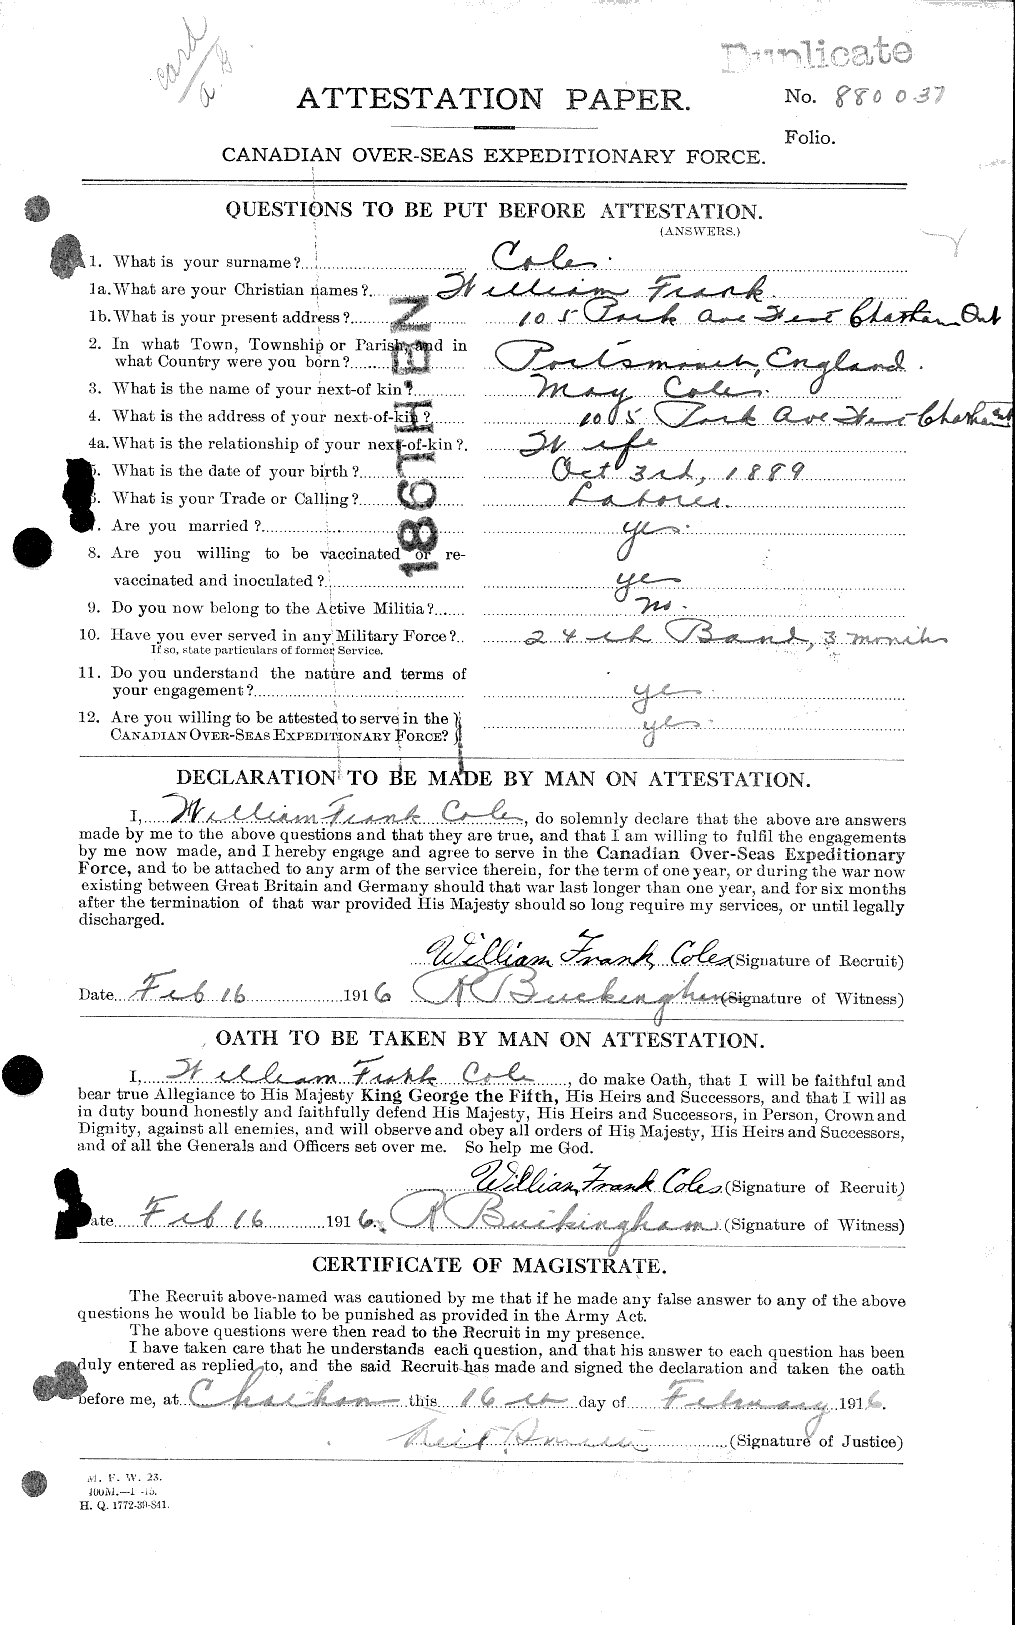 card
a.G
Duplicate
ATTESTATION PAPER.
No. 880037
Folio.
CANADIAN OVER-SEAS EXPEDITIONARY FORCE.
QUESTIONS TO BE PUT BEFORE ATTESTATION.
(ANSWERS.)
1. What is your surname?.. Coles.
1a. What are your Christian names?.. William Frank
1b. What is your present address?.. 105 Park Ave West Chatham Ont
2. In what Town, Township or Parish, and in
what Country were you born?.. Portsmouth, England.
3. What is the name of your next-of kin? May Coles.
4. What is the address of your next-of-kin?.. 105 Park Ave West Chatham Ont
4a. What is the relationship of your next-of-kin?. Wife
5. What is the date of your birth?.. Oct 3rd, 1889
6. What is your Trade or Calling?.. Laborer.
7. Are you married?.. yes.
8. Are you willing to be vaccinated or re-
vaccinated and inoculated?.. yes
9. Do you now belong to the Active Militia?.. no.
10. Have you ever served in any Military Force?.. 24th Band, 3 months
If so, state particulars of former Service.
11. Do you understand the nature and terms of
your engagement?.. yes
12. Are you willing to be attested to serve in the
CANADIAN OVER-SEAS EXPEDITIONARY FORCE? yes.
186TH BN
DECLARATION TO BE MADE BY MAN ON ATTESTATION.
I, William Frank Coles, do solemnly declare that the above are answers
made by me to the above questions and that they are true, and that I am willing to fulfil the engagements
by me now made, and I hereby engage and agree to serve in the Canadian Over-Seas Expeditionary
Force, and to be attached to any arm of the service therein, for the term of one year, or during the war now
existing between Great Britain and Germany should that war last longer than one year, and for six months
after the termination of that war provided His Majesty should so long require my services, or until legally
discharged.
William Frank Coles (Signature of Recruit)
Date Feb 16 1916 R Buckingham (Signature of Witness)
OATH TO BE TAKEN BY MAN ON ATTESTATION.
I, William Frank Coles, do make Oath, that I will be faithful and
bear true Allegiance to His Majesty King George the Fifth, His Heirs and Successors, and that I will as
in duty bound honestly and faithfully defend His Majesty, His Heirs and Successors, in Person, Crown and
Dignity, against all enemies, and will observe and obey all orders of His Majesty, His Heirs and Successors,
and of all the Generals and Officers set over me. So help me God.
William Frank Coles (Signature of Recruit)
Date Feb 16 1916. R Buckingham (Signature of Witness)
CERTIFICATE OF MAGISTRATE.
The Recruit above-named was cautioned by me that if he made any false answer to any of the above
questions he would be liable to be punished as provided in the Army Act.
The above questions were then read to the Recruit in my presence.
I have taken care that he understands each question, and that his answer to each question has been
duly entered as replied to, and the said Recruit has made and signed the declaration and taken the oath
before me, at Chatham this 16th day of February 1916.
(Signature of Justice)
M. F. W. 23.
H. Q. 1772-39-841.